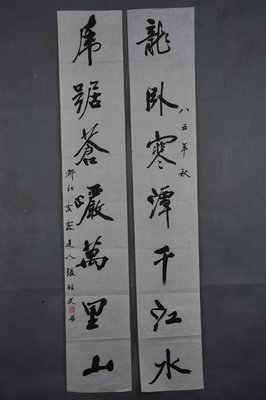 龍卧寒潭千江水
八五年秋
虎踞蒼巖萬里山
都江
道人張